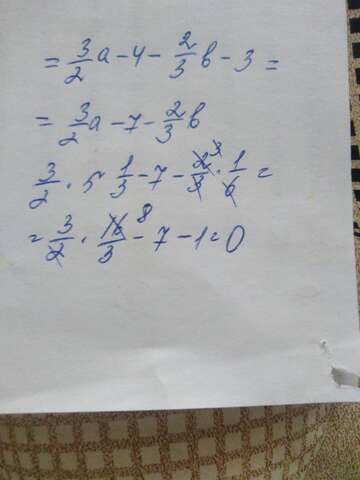 = 3/2 a - 4 - 2/3 b - 3 =
= 3/2 a - 7 - 2/3 b
3/2 · 5 1/3 - 7 - 2/3 3 · 1/6 =
= 3/2 · 16/3 8 - 7 - 1 = 0